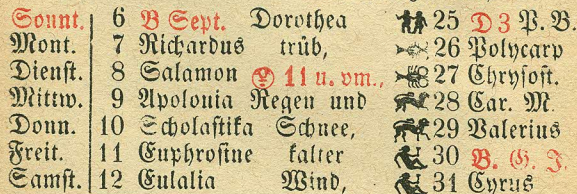 Sonnt. 6 B Sept. Dorothea 25 D 3 P. B.
Mont. 7 Richardus trüb, 26 Polycarp
Dienst. 8 Salamon 11 u. vm., 27 Chrysost.
Mittw. 9 Apolonia Regen und 28 Car. M.
Donn. 10 Scholastika Schnee, 29 Valerius
Freit. 11 Euphrosine kalter 30 B. G. J.
Samst. 12 Eulalia Wind, 31 Cyrus